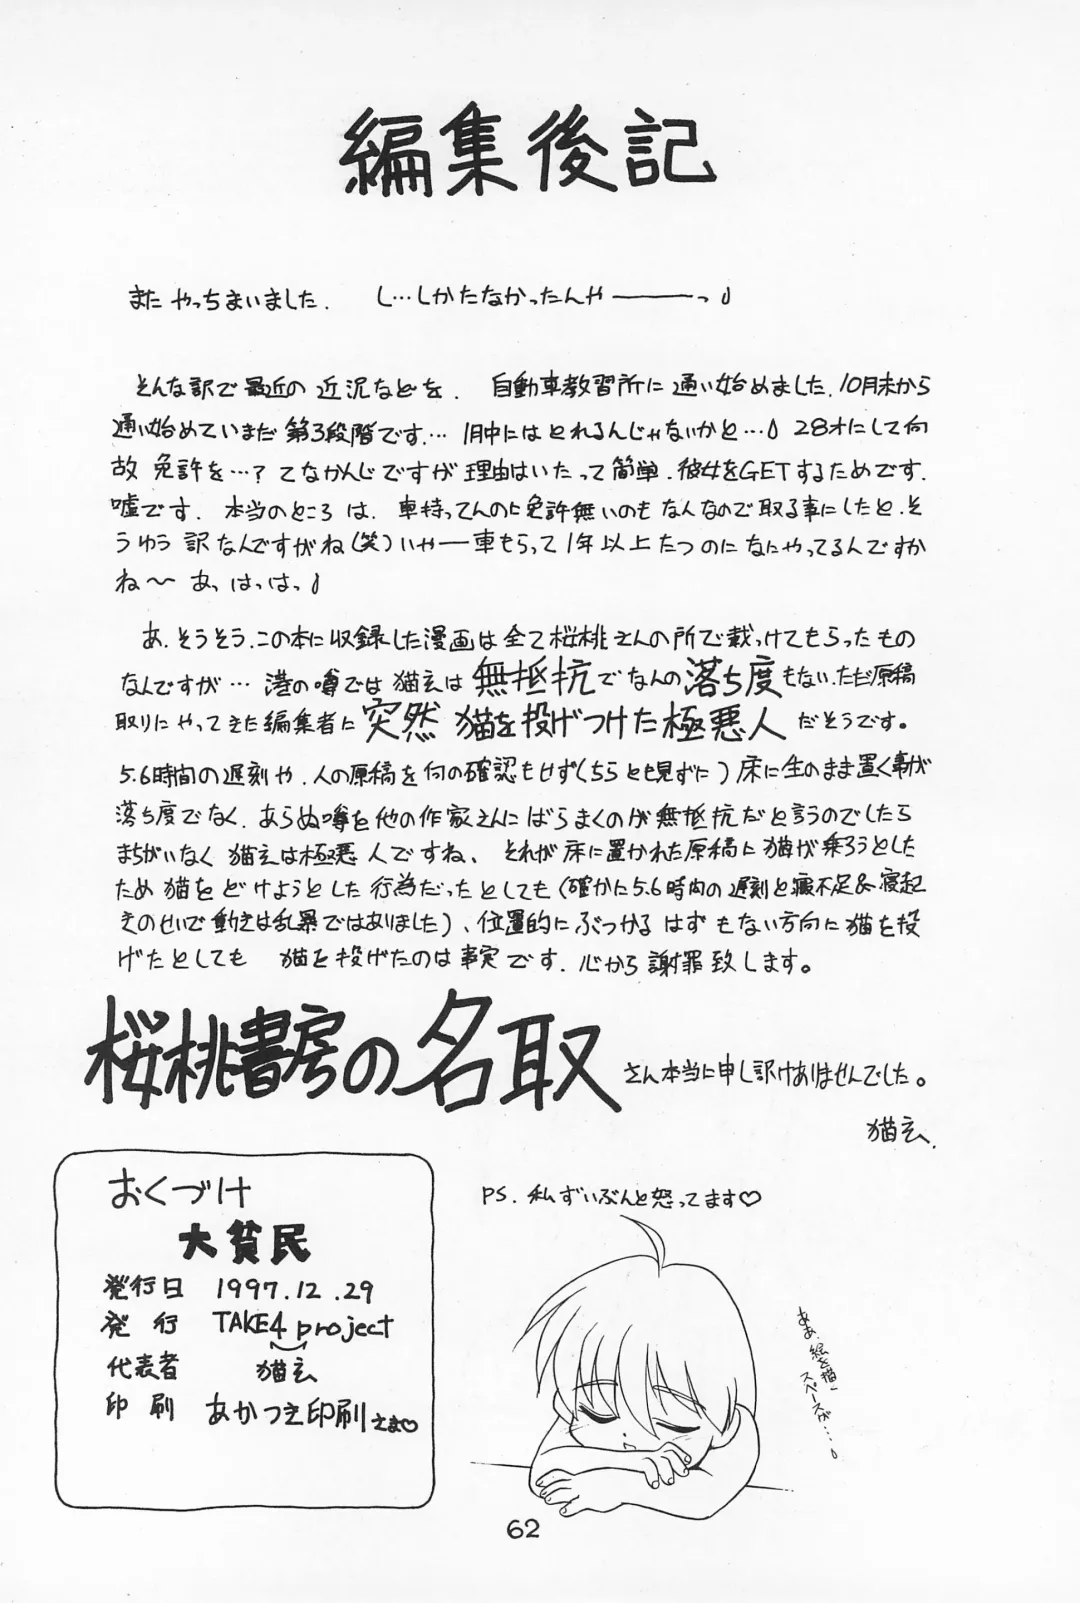 編集後記
また やっちまいました. し…しかたなかったんや———っ
そんな訳で最近の近況などを. 自動車教習所に通い始めました.10月末から
通い始めていまだ第3段階です…. 1月中にはとれるんじゃないかと… 28才にして何
故 免許を…? てなかんじですが理由はいたって簡単.彼女をGETするためです.
嘘です. 本当のところは. 車持ってんのに免許無いのもなんなので取る事にしたと.そ
うゆう訳なんですがね(笑)いやー車もらって1年以上たつのになにやってるんですか
ね〜 あっはっはっ
あ.そうそう.この本に収録した漫画は全て桜桃さんの所で載っけてもらったもの
なんですが… 港の噂では猫玄は無抵抗でなんの落ち度もない.ただ原稿
取りにやってきた編集者に突然 猫を投げつけた極悪人だそうです。
5.6時間の遅刻や.人の原稿を何の確認もせず(ちらとも見ずに)床に生のまま置く事が
落ち度でなく.あらぬ噂を他の作家さんにばらまくのが無抵抗だと言うのでしたら
まちがいなく猫玄は極悪人ですね、それが床に置かれた原稿に猫が乗ろうとした
ため猫をどけようとした行為だったとしても(確かに5.6時間の遅刻と寝不足&寝起
きのせいで動きは乱暴ではありました)、位置的にぶつかるはずもない方向に猫を投
げたとしても 猫を投げたのは事実です.心から謝罪致します。
桜桃書房の名取さん本当に申し訳けありませんでした。
猫玄.
PS. 私ずいぶんと怒ってます♡
おくづけ
大貧民
発行日 1997.12.29
発行 TAKE4 project
代表者 猫玄
印刷 あかつき印刷さま♡
ああ.絵を描く
スペースが…
62